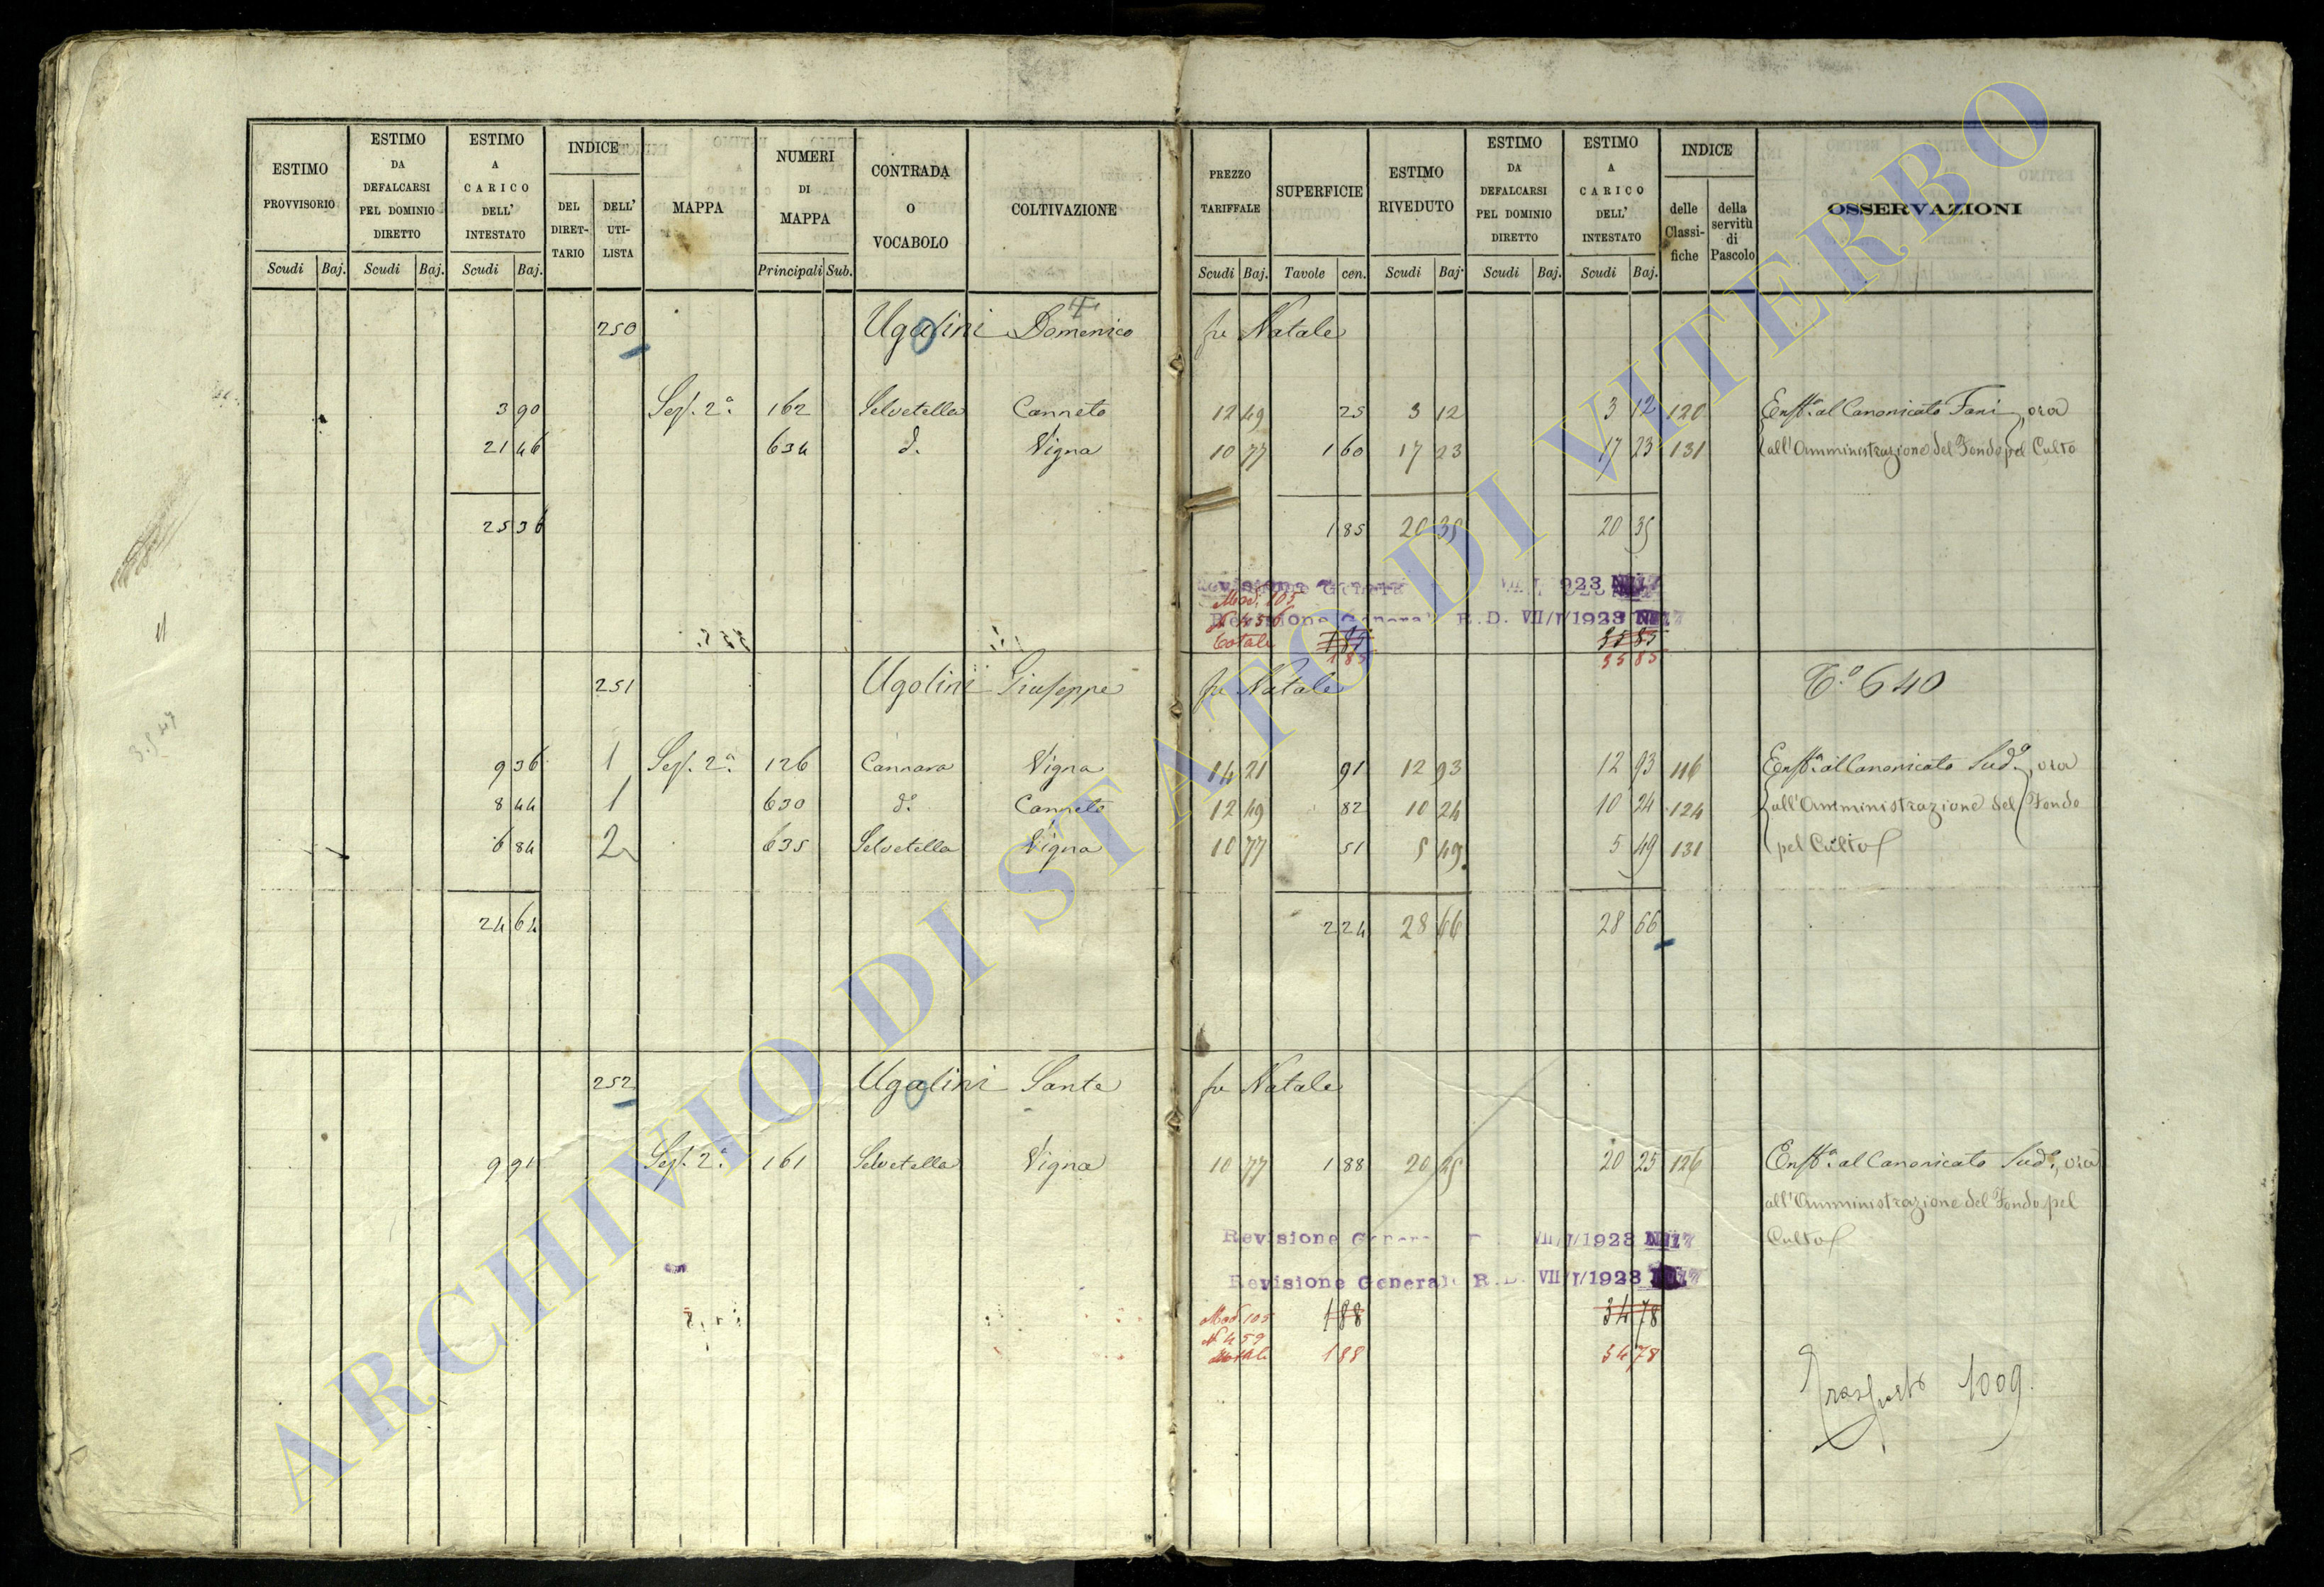 ESTIMO PROVVISORIO | ESTIMO DA DEFALCARSI PEL DOMINIO DIRETTO | ESTIMO A CARICO DELL' INTESTATO | INDICE DEL DIRET-TARIO | DELL' UTI-LISTA | MAPPA | NUMERI DI MAPPA | CONTRADA O VOCABOLO | COLTIVAZIONE | PREZZO TARIFFALE | SUPERFICIE | ESTIMO RIVEDUTO | ESTIMO DA DEFALCARSI PEL DOMINIO DIRETTO | ESTIMO A CARICO DELL' INTESTATO | INDICE delle Classi-fiche | della servitù di Pascolo | OSSERVAZIONI
Scudi Baj. Scudi Baj. Scudi Baj. Principali Sub. Scudi Baj. Tavole cen. Scudi Baj. Scudi Baj. Scudi Baj.
250 Ugolini Domenico fu Natale
3 90 Sez. 2a. 162 Selvetella Canneto 12 49 25 3 12 3 12 120 Enfta. al Canonicato Fani, ora
21 46 634 d. Vigna 10 77 1 60 17 23 17 23 131 all'Amministrazione del Fondo pel Culto
25 36 1 85 20 35 20 35
Revisione General 923
Mod. 105
Revisione General R.D. VII/I/1923 N 17
Totale 1 85 35 85
1 85 35 85
251 Ugolini Giuseppe fu Natale To. 640
9 36 1 Sez. 2a. 126 Cannara Vigna 14 21 91 12 93 12 93 116 Enfta. al Canonicato Sudo., ora
8 44 1 630 do. Canneto 12 49 82 10 24 10 24 124 all'Amministrazione del Fondo
6 84 2 635 Selvetella Vigna 10 77 51 5 49 5 49 131 pel Culto
24 64 2 24 28 66 28 66
252 Ugolini Sante fu Natale
9 91 Sez. 2a. 161 Selvetella Vigna 10 77 1 88 20 25 20 25 126 Enfta. al Canonicato Sudo., ora
all'Amministrazione del Fondo pel
Culto
Revisione Gener VII/I/1923 N 17
Revisione General R.D. VII/I/1923
Mod. 105 1 88 34 78
N 459
Totale 1 88 34 78
Trasporto 1009.
ARCHIVIO DI STATO DI VITERBO